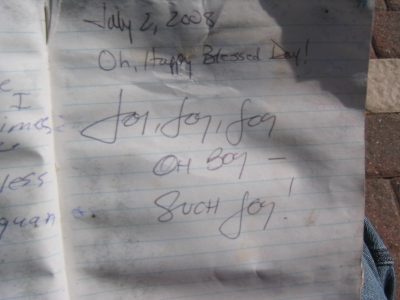 July 2, 2008
Oh, Happy Blessed Day!
Joy, Joy, Joy
OH BOY —
SUCH JOY!
I
less